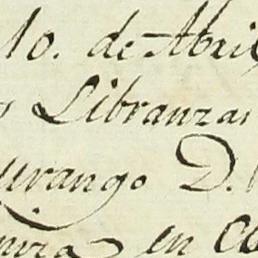 10. de Abril
Libranzas
urango D.
en